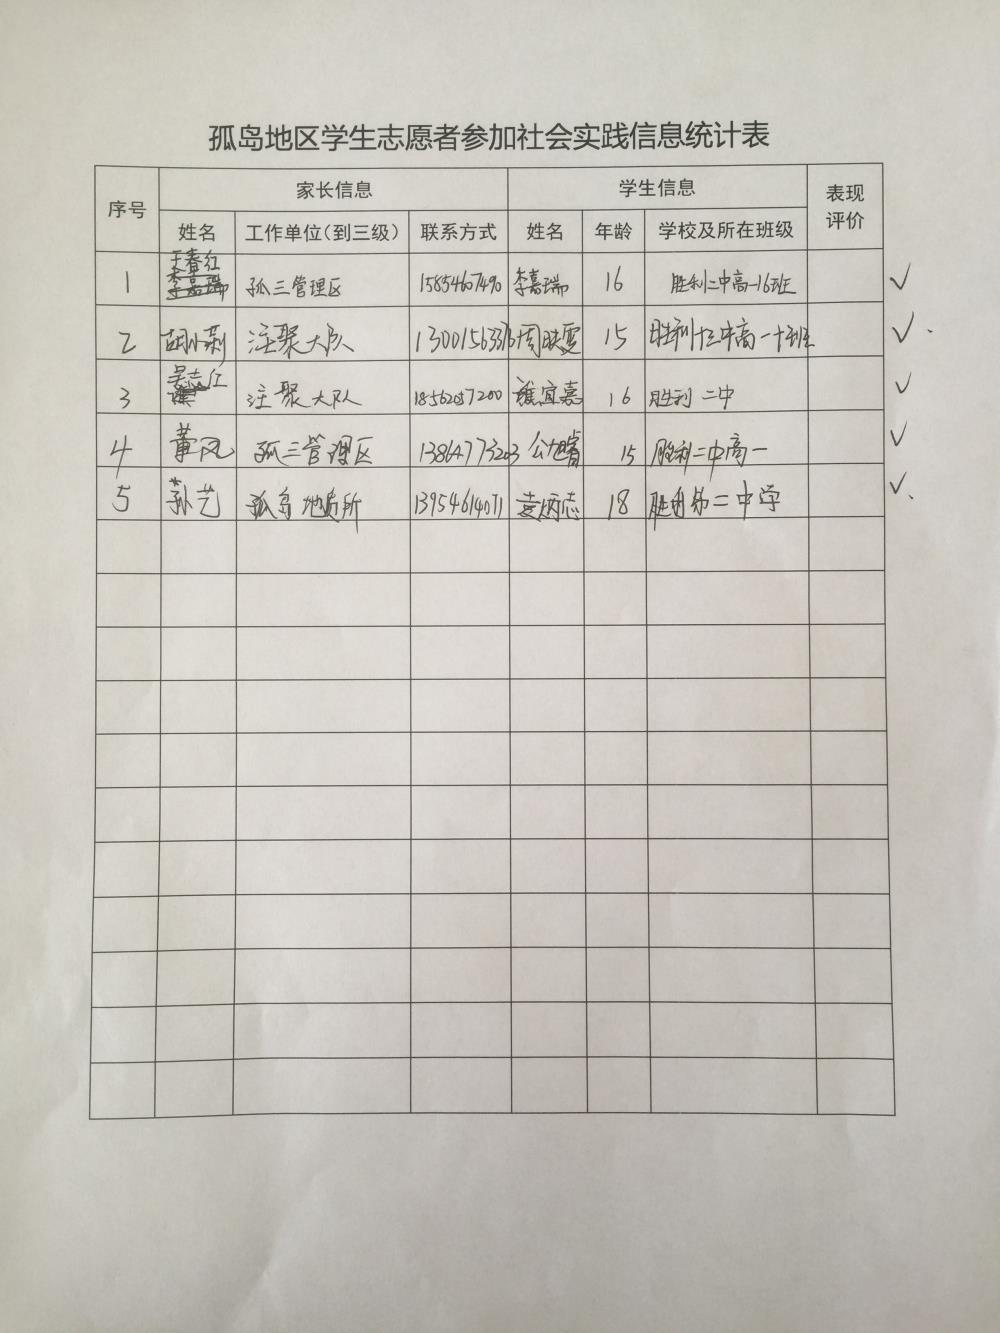 孤岛地区学生志愿者参加社会实践信息统计表
序号 家长信息 学生信息 表现评价
姓名 工作单位（到三级） 联系方式 姓名 年龄 学校及所在班级
1 于春红 孤三管理区 15854607490 李嘉瑞 16 胜利二中高一16班 √
2 胡小莉 注聚大队 周映雯 15 胜利十三中高一十班 √
3 吴志红 注聚大队 18562037200 宜嘉 16 胜利二中 √
4 董凤 孤三管理区 13864773203 15 胜利二中高一 √
5 孙艺 孤岛地质所 13954614071 炳志 18 胜利第二中学 √